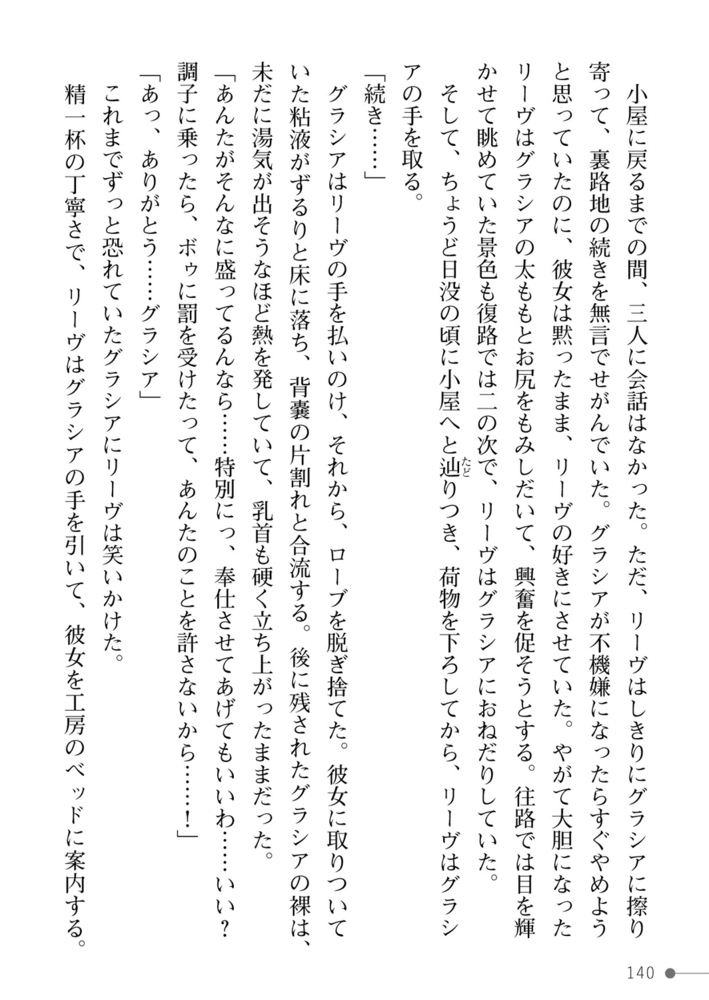 小屋に戻るまでの間、三人に会話はなかった。ただ、リーヴはしきりにグラシアに擦り
寄って、裏路地の続きを無言でせがんでいた。グラシアが不機嫌になったらすぐやめよう
と思っていたのに、彼女は黙ったまま、リーヴの好きにさせていた。やがて大胆になった
リーヴはグラシアの太ももとお尻をもみしだいて、興奮を促そうとする。往路では目を輝
かせて眺めていた景色も復路では二の次で、リーヴはグラシアにおねだりしていた。
そして、ちょうど日没の頃に小屋へと辿りつき、荷物を下ろしてから、リーヴはグラシ
アの手を取る。
「続き……」
グラシアはリーヴの手を払いのけ、それから、ローブを脱ぎ捨てた。彼女に取りついて
いた粘液がずるりと床に落ち、背嚢の片割れと合流する。後に残されたグラシアの裸は、
未だに湯気が出そうなほど熱を発していて、乳首も硬く立ち上がったままだった。
「あんたがそんなに盛ってるんなら……特別にっ、奉仕させてあげてもいいわ……いい？
調子に乗ったら、ボゥに罰を受けたって、あんたのことを許さないから……！」
「あっ、ありがとう……グラシア」
これまでずっと恐れていたグラシアにリーヴは笑いかけた。
精一杯の丁寧さで、リーヴはグラシアの手を引いて、彼女を工房のベッドに案内する。
140